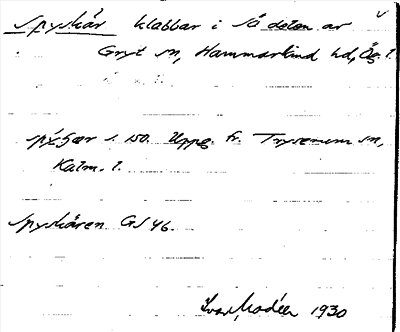 Spyskär klabbar i SÖ delen av
Gryt sn, Hammarkind hd, Ög. l.
spy̨skær s. 150. Uppg. fr. Tryserum sn,
Kalm. l.
Spyskären GS 46.
Ivar Modéer 1930